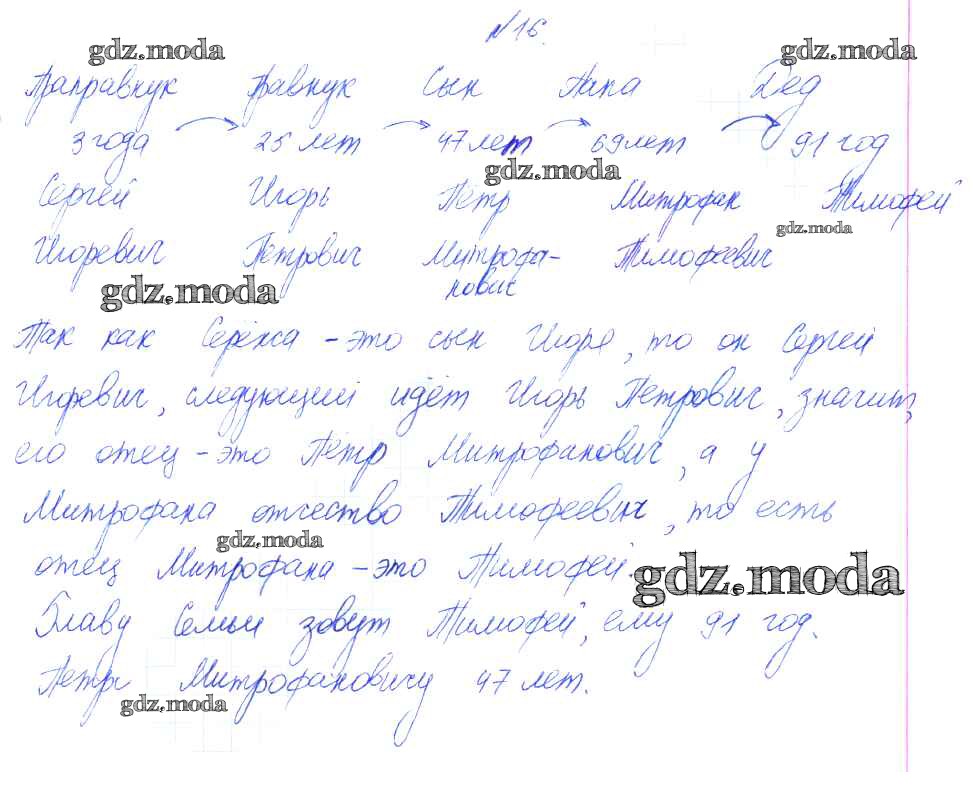 №16.
gdz.moda gdz.moda
Праправнук Правнук Сын Папа Дед
3 года 25 лет 47 лет 69 лет 91 год
gdz.moda
Сергей Игорь Пётр Митрофан Тимофей
gdz.moda
Игоревич Петрович Митрофа- Тимофеевич
нович
gdz.moda
Так как Серёжа - это сын Игоря, то он Сергей
Игоревич, следующий идёт Игорь Петрович, значит,
его отец - это Пётр Митрофанович, а у
Митрофана отчество Тимофеевич, то есть
gdz.moda
отец Митрофана - это Тимофей.
gdz.moda
Главу семьи зовут Тимофей, ему 91 год.
Петру Митрофановичу 47 лет.
gdz.moda